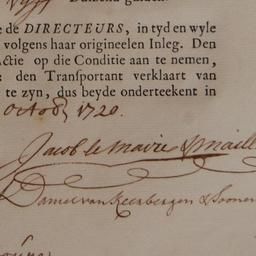 Duizend guldens
e de DIRECTEURS, in tyd en wyle
volgens haar origineelen Inleg. Den
Actie op die Conditie aan te nemen,
: den Transportant verklaart van
te zyn, dus beyde onderteekent in
Octob 1720.
Jacob le Mavie & maill
Daniel van Keerbergen & Soonen